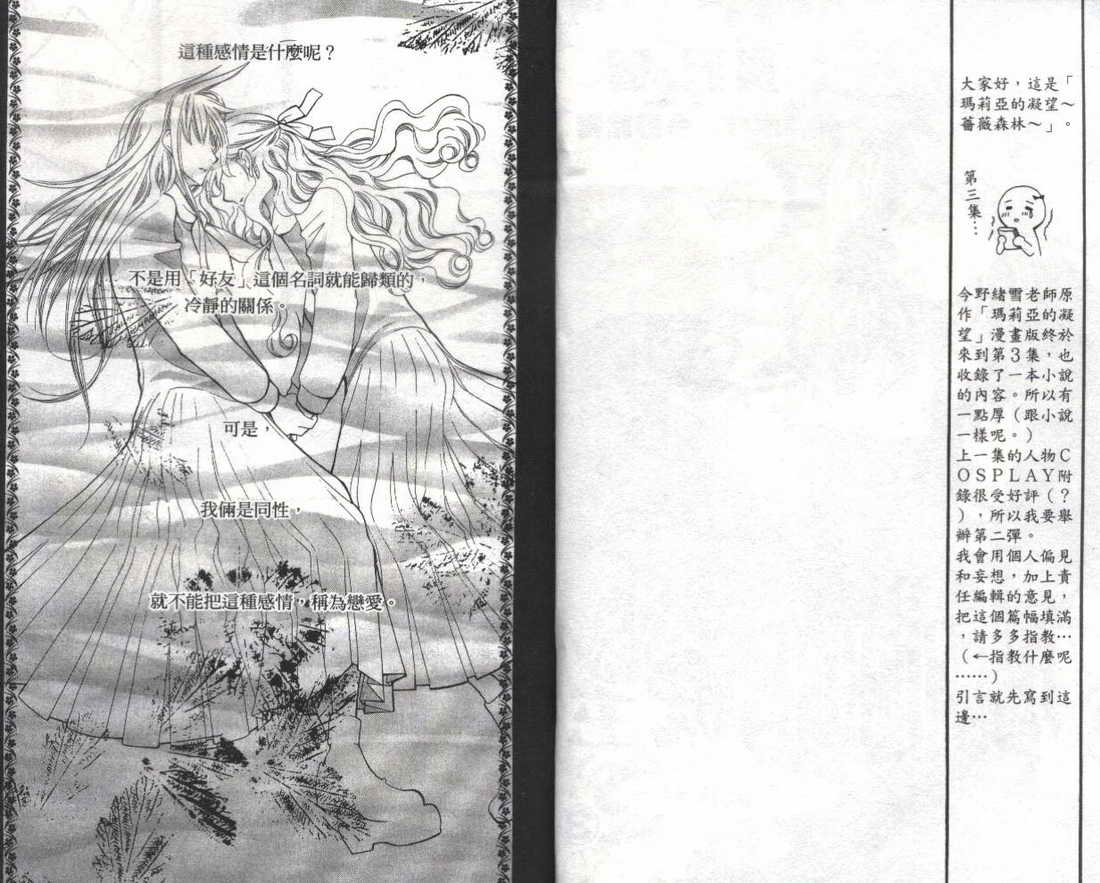 這種感情是什麼呢？
不是用「好友」這個名詞就能歸類的，
冷靜的關係。
可是，
我倆是同性，
就不能把這種感情，稱為戀愛。
大家好，這是「
瑪莉亞的凝望～
薔薇森林～」。
第三集…
今野緒雪老師原
作「瑪莉亞的凝
望」漫畫版終於
來到第３集，也
收錄了一本小說
的內容。所以有
一點厚（跟小說
一樣呢。）
上一集的人物Ｃ
ＯＳＰＬＡＹ附
錄很受好評（？
），所以我要舉
辦第二彈。
我會用個人偏見
和妄想，加上責
任編輯的意見，
把這個篇幅填滿
，請多多指教…
（←指教什麼呢
……）
引言就先寫到這
邊…